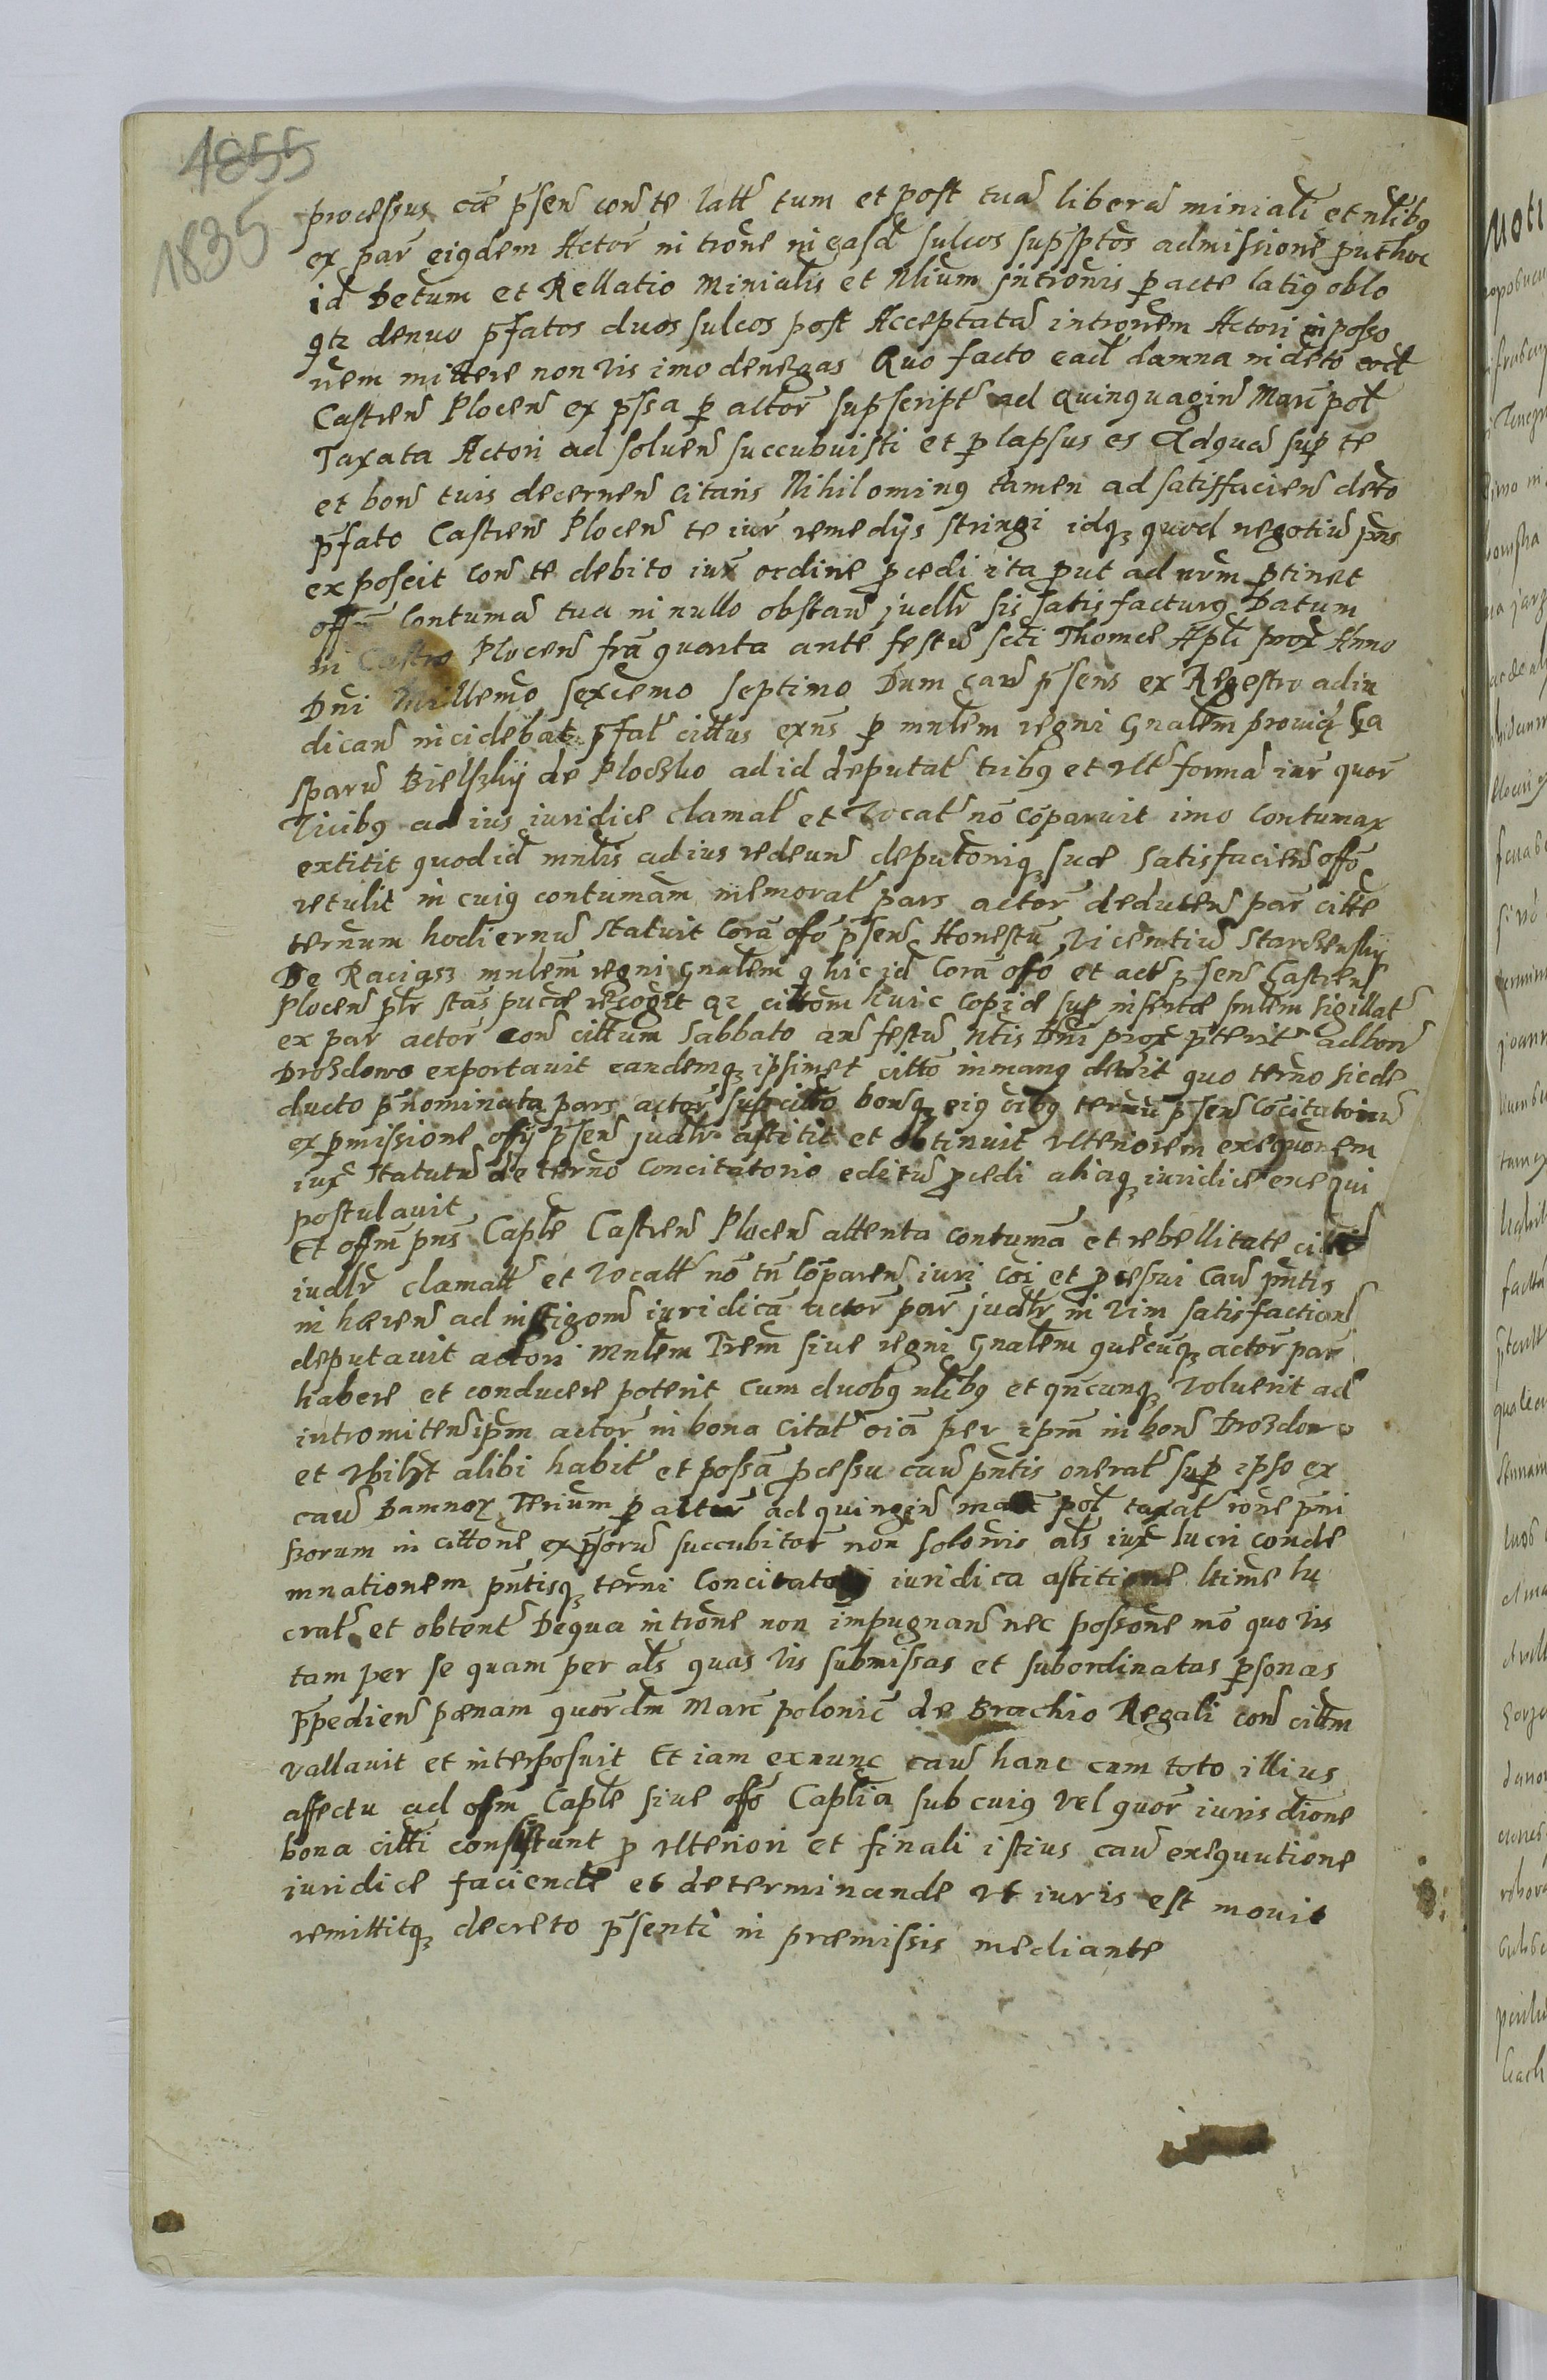 1855
1835
processus cæ p̄sen̄ con̄ te latt̄ tum et post tuā liberā miniali et nlibꝰ
ex par̄ eiꝰdem Actor̄ in trōne in easd̄ sulcos supsptōs admissione prout hoc
id Detum et Rellatio Minialis et Nlium introōnis p acte latiꝰ oblo
qtz denuo p̄fatos duos sulcos post Acceptatā introōnem Actori in posso
nem mittere non vis imo denegas Quo facto ead̄ damna in detō
Castren̄ Plocen̄ ex p̄ssa p actor̄ supscript̄ ad Quinquagin̄ Marc̄ pol̄
Taxata Actori ad soluen̄ succubuisti et p lapsus es Ad quā sup te
et bon̄ tuis decernen̄ citaris Nihilominꝰ tamen ad satisfacien̄ detō
p̄fato Castren̄ Plocen̄ te iur̄ remedijs stringi idqꝫ quod negotiū pn̄s
exposcit con̄ te debito iur̄ ordine pcedi ita put ad nrm̄ ptinet
offm̄ Contumā tua in nullo obstan̄ judlr̄ sis satisfacturꝰ Datum
in Castro Plocen̄ fr̄a quarta ante festū scti Thomæ Apli prox Anno
Dn̄i Millemo sexcemo septimo Dum cau̅ p̄sens ex Regestro adiu
dican̄ incidebat p̄fat̄ cittus exn̄s p mnlem regni gn̄alem prouid̄ Ga
sparū Bielszkij de Ploczko ad id deputat̄ tribꝰ et vlt̄ formā iur̄ quor̄
vicibꝰ ad ius iuridice clamat̄ et vocat̄ nō cōparuit imo contumax
extitit quod id mnlis ad ius redeun̄ deputōniqꝫ suæ satisfacien̄ offō
retulit in cuiꝰ contumām memorat̄ pars actor̄ deducen̄ par̄ cittæ
ternum hodiernū statuit Corā offō p̄sen̄ Honestū Vicentiū Starczenskij
De Raciąsz mnlem regni gn̄alem q hic id Corā offō et actis p̄sen̄ Castren̄
Plocen̄ plr̄ stās pu͞cæ recogit qz cittōm huic copiæ sup insertæ smlem sigillat̄
ex par̄ actor̄ con̄ cittum Sabbato an̄ festū Ntis Dn̄i prox p̄terit̄ ad bon̄
Drozdowo exportauit eandemqꝫ ipsimet cittō in manꝰ dedit quo ternō sic de
ducto p̄nominata pars actor̄ sup cittō bonsqꝫ eiꝰ oībꝰ ternū p̄sen̄ Cōcitatoriū
ex pmissione offij p̄sen̄ judlr̄ astitit et obtinuit vlteriorem exequōnem
iux̄ statutū de ternō Concitatorio editū pcedi aliaqꝫ iuridice exequi
postulauit
Et offm̄ pn̄s Caple Castren̄ Plocen̄ attenta contumā et rebellitate citti
iudlr̄ clamatt̄ et vocatt̄ nō tn̄ cōparen̄ iuri cōi et pcessui cau̅ pn̄tis
in hæren̄ ad instigōnē iuridicā actor̄ par̄ judlr̄ in vim satisfaction̄
deputauit actori Mnlem Trem̄ siue regni gn̄alem quēcunqꝫ actor̄ par̄
habere et conducere poterit cum duobꝰ nlibꝰ et qn̄cunqꝫ voluerit ad
intromiten̄ ipm̄ actor̄ in bona citat̄ oīa per ipm̄ in bon̄ Drozdowo
et vbilꝫt alibi habit̄ et possā pcessu cau̅ pn̄tis onerat̄ sup ipso ex
cau̅ Damnoꝝ Terium p actor̄ ad quingin̄ marc̄ pol̄ taxat̄ rōne p̄mi
ssorum in cittōne exp̄ssorū succubitor̄ non solōnis als̄ iux̄ lucri conde
mnationem pn̄tisqꝫ terni Concitatorij iuridica astitione ltime lu
crat̄ et obtent̄ De qua introōne non impugnan̄ nec possōne mō quo vis
tam per se quam per als̄ quas vis submissas et subordinatas psonas
p̄pedien̄ pœnam quordm̄ Marc̄ polonic̄ de Brachio Regali con̄ cittm̄
vallauit et interposuit Et iam exnunc cau̅ hanc cum toto illius
affectu ad offm̄ Caple siue offō Captia sub cuiꝰ vel quor̄ iurisdione
bona citti consistunt p vlteriori et finali istius cau̅ exequutione
iuridice faciende et determinande vt iuris est mouit
remittitqꝫ decreto p̄senti in præmissis mediante